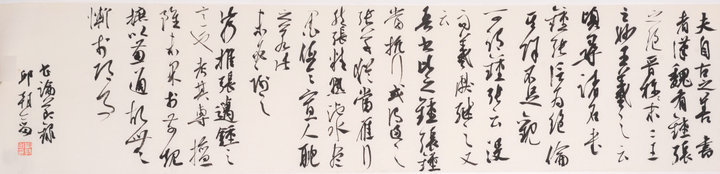 夫自古之善書
者漢魏有鍾張
之絕晉末稱二王
之妙王羲之云
頃尋諸名書
鍾張信為絕倫
其餘不足觀
可謂鍾張云沒
而羲獻繼之又
云吾書比之鍾張鍾
當抗行或謂過之
張草猶當雁行
然張精熟池水盡
墨假令寡人耽
之若此
未必謝之
此乃推張邁鍾之
意也考其專擅
雖未果於前規
摭以兼通故無
慚於即事
書論節錄